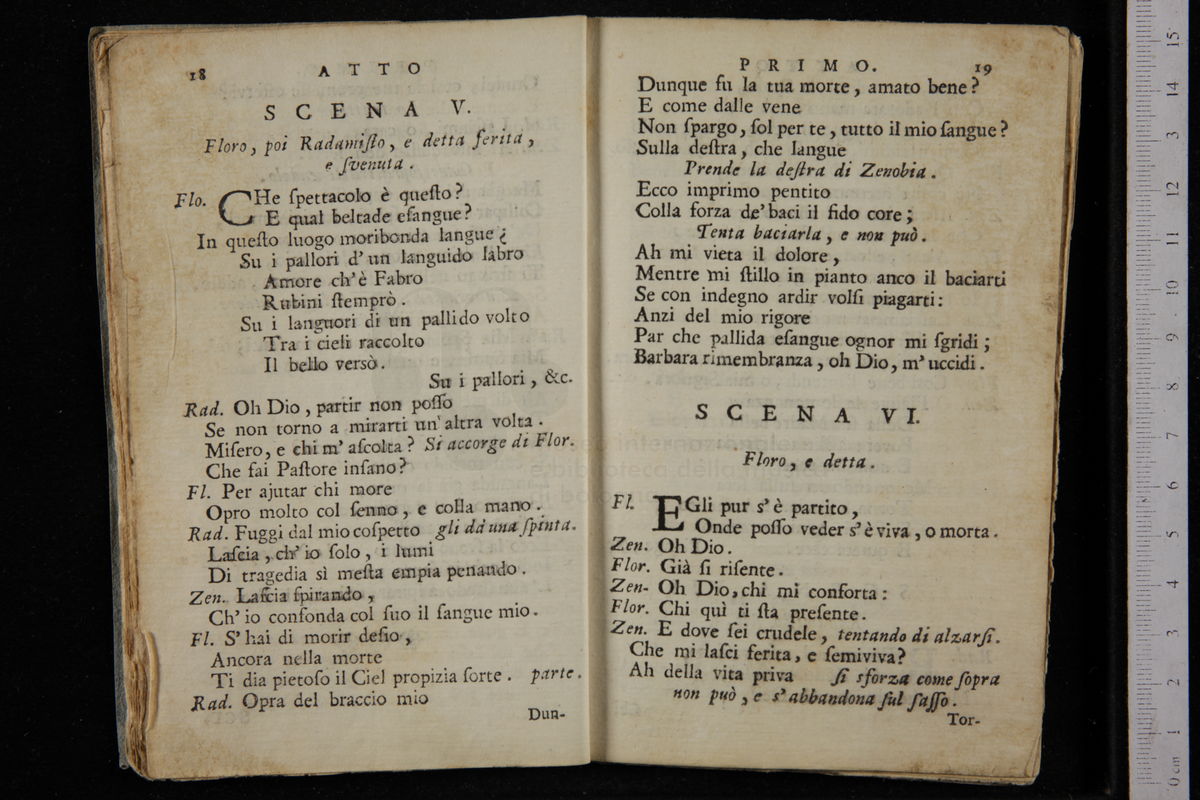 18 ATTO
SCENA V.
Floro, poi Radamiſto, e detta ferita,
e ſvenuta.
Flo. CHe ſpettacolo è queſto?
E qual beltade eſangue?
In queſto luogo moribonda langue?
Su i pallori d'un languido labro
Amore ch'è Fabro
Rubini ſtemprò.
Su i languori di un pallido volto
Tra i cieli raccolto
Il bello versò.
Su i pallori, &c.
Rad. Oh Dio, partir non poſſo
Se non torno a mirarti un'altra volta.
Miſero, e chi m'aſcolta? Si accorge di Flor.
Che fai Paſtore inſano?
Fl. Per ajutar chi more
Opro molto col ſenno, e colla mano.
Rad. Fuggi dal mio coſpetto gli dà una ſpinta.
Laſcia, ch'io ſolo, i lumi
Di tragedia sì meſta empia penando.
Zen. Laſcia ſpirando,
Ch'io confonda col ſuo il ſangue mio.
Fl. S'hai di morir deſio,
Ancora nella morte
Ti dia pietoſo il Ciel propizia ſorte. parte.
Rad. Opra del braccio mio
Dun-
PRIMO. 19
Dunque fu la tua morte, amato bene?
E come dalle vene
Non ſpargo, ſol per te, tutto il mio ſangue?
Sulla deſtra, che langue
Prende la deſtra di Zenobia.
Ecco imprimo pentito
Colla forza de'baci il fido core;
Tenta baciarla, e non può.
Ah mi vieta il dolore,
Mentre mi ſtillo in pianto anco il baciarti
Se con indegno ardir volſi piagarti:
Anzi del mio rigore
Par che pallida eſangue ognor mi ſgridi;
Barbara rimembranza, oh Dio, m'uccidi.
SCENA VI.
Floro, e detta.
Fl. EGli pur s'è partito,
Onde poſſo veder s'è viva, o morta.
Zen. Oh Dio.
Flor. Già ſi riſente.
Zen- Oh Dio, chi mi conforta:
Flor. Chi quì ti ſta preſente.
Zen. E dove ſei crudele, tentando di alzarſi.
Che mi laſci ferita, e ſemiviva?
Ah della vita priva ſi sforza come ſopra
non può, e s'abbandona ſul ſaſſo.
Tor-